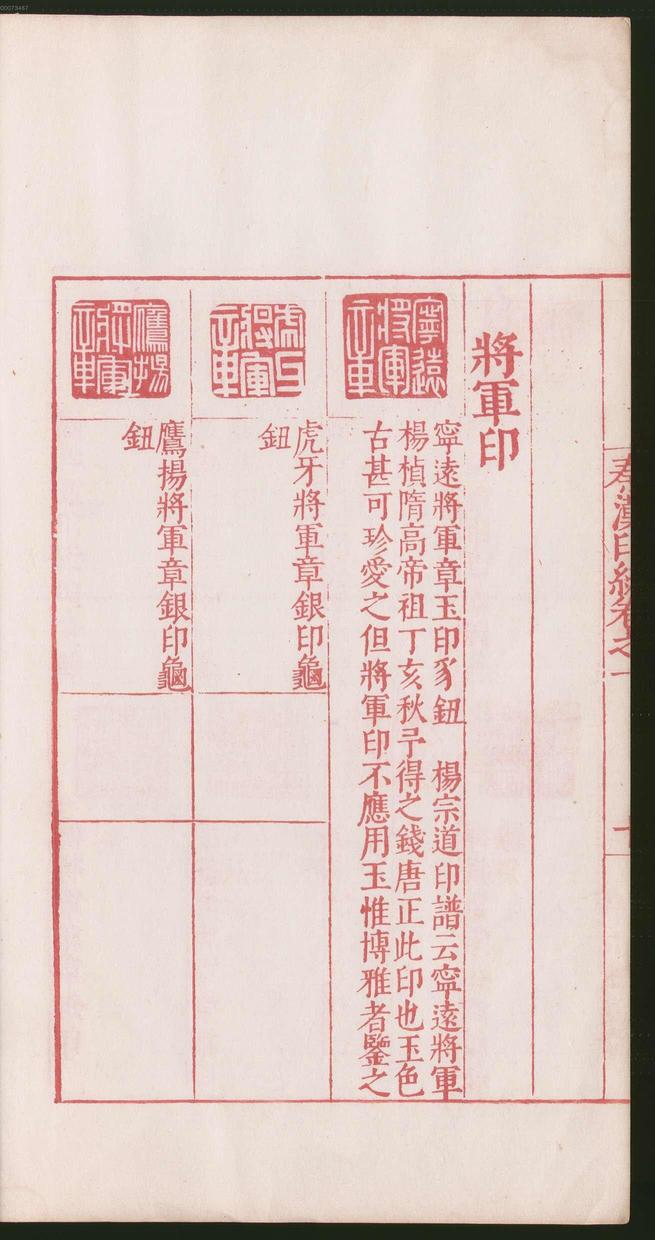 00073487
秦漢印統卷之一
將軍印
寧遠將軍章
寧遠將軍章玉印豸鈕　楊宗道印譜云寧遠將軍
楊楨隋高帝祖丁亥秋予得之錢唐正此印也玉色
古甚可珍愛之但將軍印不應用玉惟博雅者鑒之
虎牙將軍章
虎牙將軍章銀印龜
鈕
鷹揚將軍章
鷹揚將軍章銀印龜
鈕